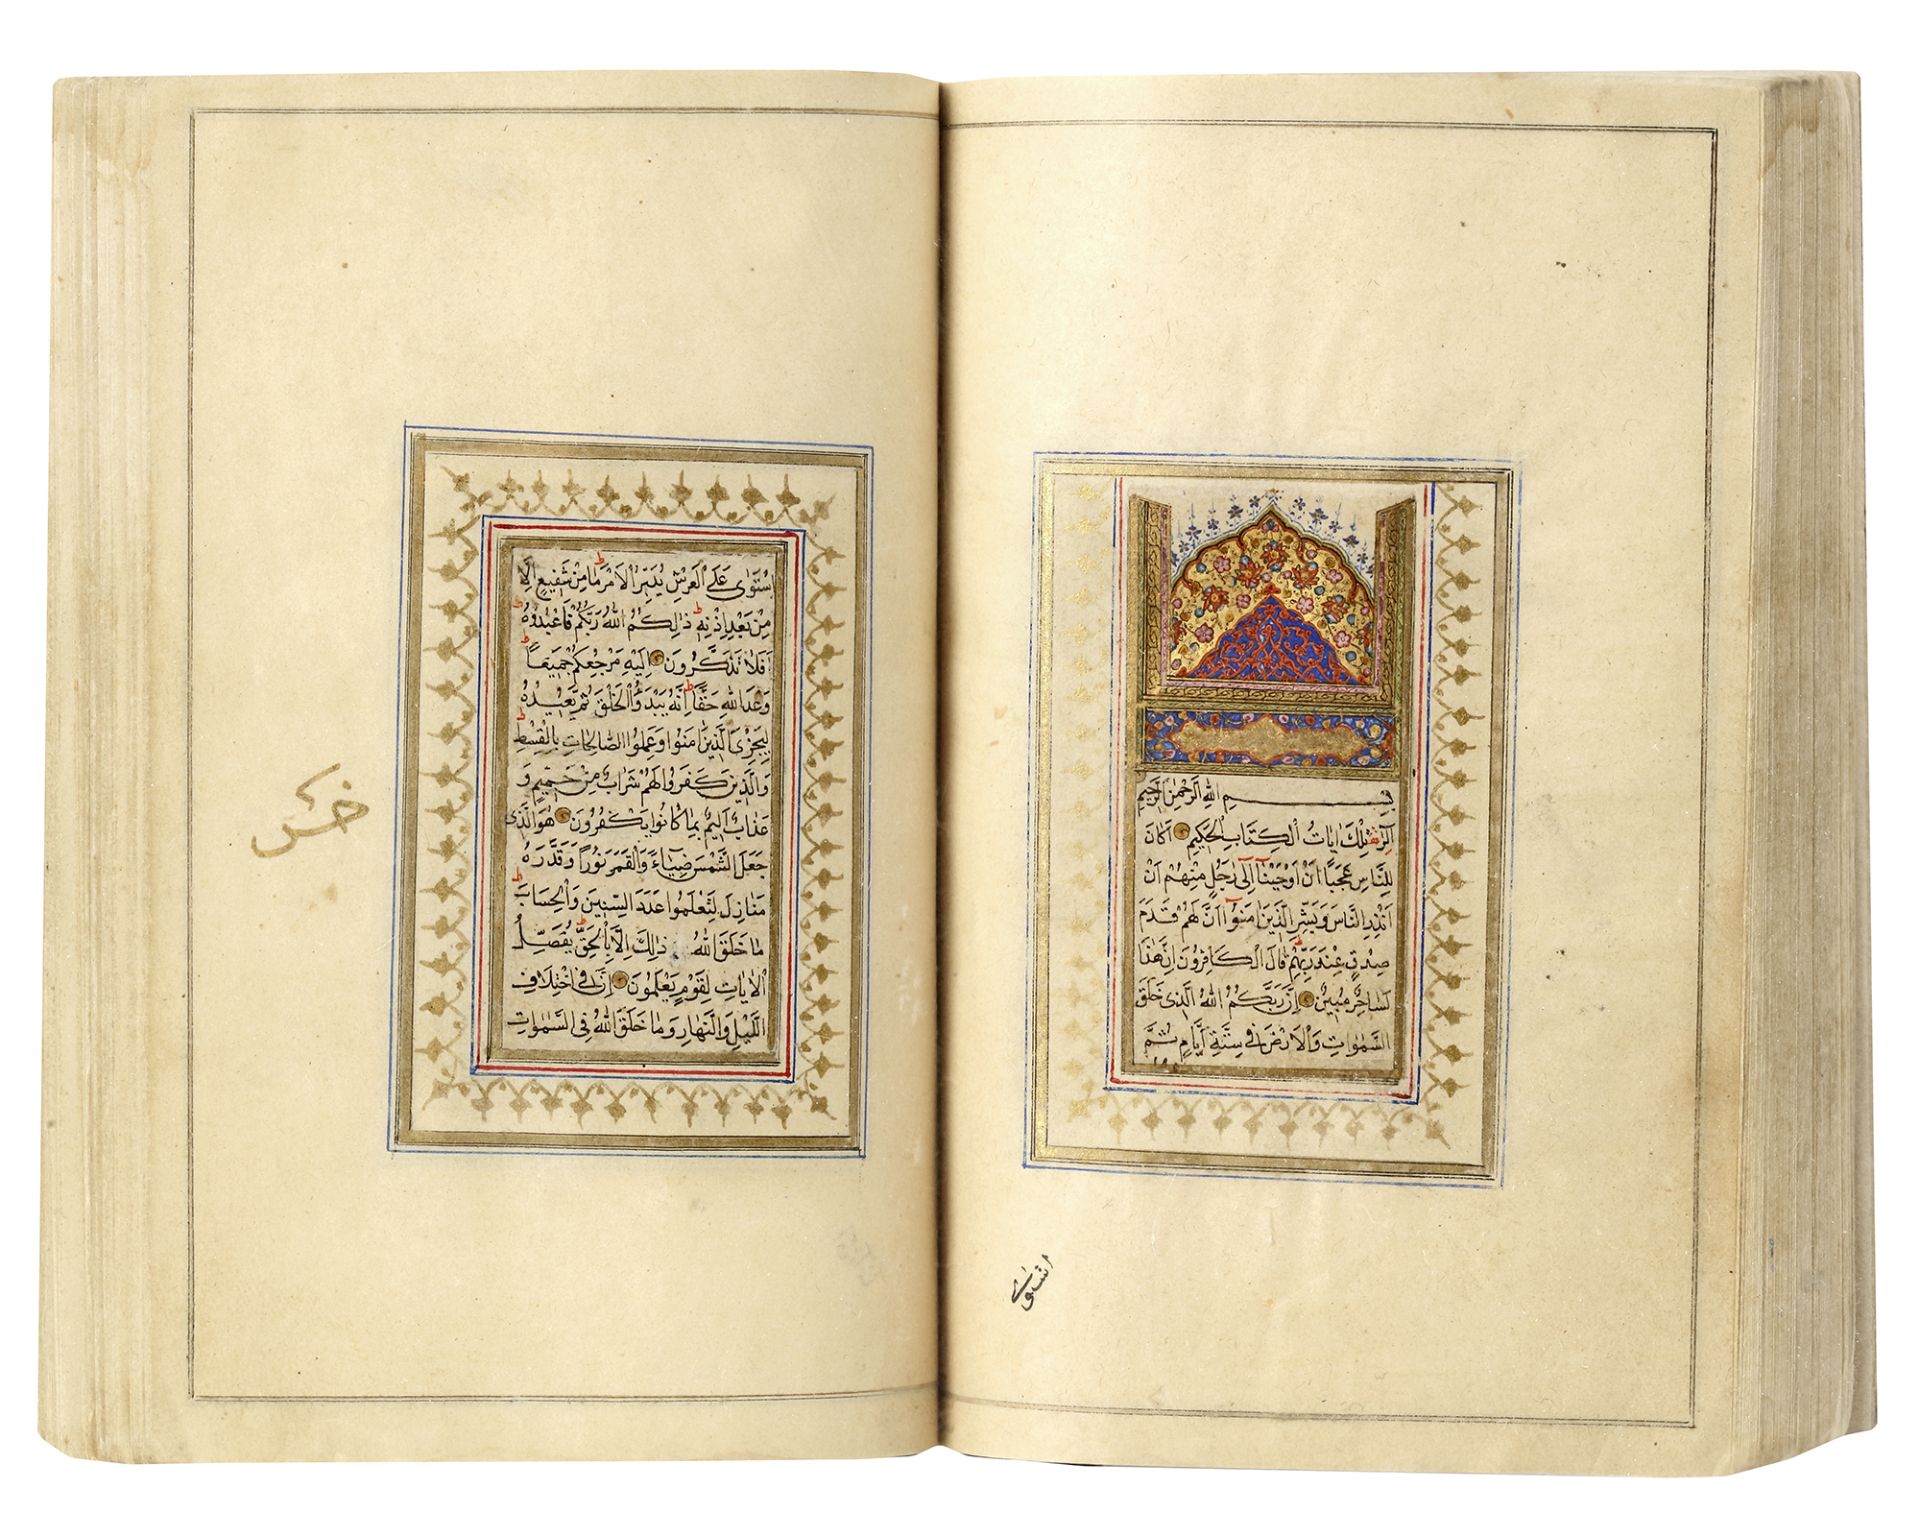 بِسْمِ اللهِ الرَّحْمٰنِ الرَّحِيمِ
الٓرٰ تِلْكَ اٰيَاتُ الْكِتَابِ الْحَكِيمِ اَكَانَ
لِلنَّاسِ عَجَبًا اَنْ اَوْحَيْنَآ اِلٰى رَجُلٍ مِنْهُمْ اَنْ
اَنْذِرِ النَّاسَ وَبَشِّرِ الَّذِينَ اٰمَنُوٓا اَنَّ لَهُمْ قَدَمَ
صِدْقٍ عِنْدَ رَبِّهِمْ ط قَالَ الْكَافِرُونَ اِنَّ هٰذَا
لَسَاحِرٌ مُبِينٌ اِنَّ رَبَّكُمُ اللهُ الَّذِى خَلَقَ
السَّمٰوَاتِ وَالْاَرْضَ فِى سِتَّةِ اَيَّامٍ ثُمَّ
استوى
اسْتَوٰى عَلَى الْعَرْشِ يُدَبِّرُ الْاَمْرَ ط مَا مِنْ شَفِيعٍ اِلَّا
مِنْ بَعْدِ اِذْنِهِ ط ذٰلِكُمُ اللهُ رَبُّكُمْ فَاعْبُدُوهُ ط
اَفَلَا تَذَكَّرُونَ اِلَيْهِ مَرْجِعُكُمْ جَمِيعًا ط
وَعْدَ اللهِ حَقًّا ط اِنَّهُ يَبْدَؤُا الْخَلْقَ ثُمَّ يُعِيدُهُ
لِيَجْزِىَ الَّذِينَ اٰمَنُوا وَعَمِلُوا الصَّالِحَاتِ بِالْقِسْطِ ط
وَالَّذِينَ كَفَرُوا لَهُمْ شَرَابٌ مِنْ حَمِيمٍ وَ
عَذَابٌ اَلِيمٌ بِمَا كَانُوا يَكْفُرُونَ هُوَ الَّذِى
جَعَلَ الشَّمْسَ ضِيَآءً وَالْقَمَرَ نُورًا وَقَدَّرَهُ
مَنَازِلَ لِتَعْلَمُوا عَدَدَ السِّنِينَ وَالْحِسَابَ ط
مَا خَلَقَ اللهُ ذٰلِكَ اِلَّا بِالْحَقِّ ط يُفَصِّلُ
الْاٰيَاتِ لِقَوْمٍ يَعْلَمُونَ اِنَّ فِى اخْتِلَافِ
اللَّيْلِ وَالنَّهَارِ وَمَا خَلَقَ اللهُ فِى السَّمٰوَاتِ
خمس